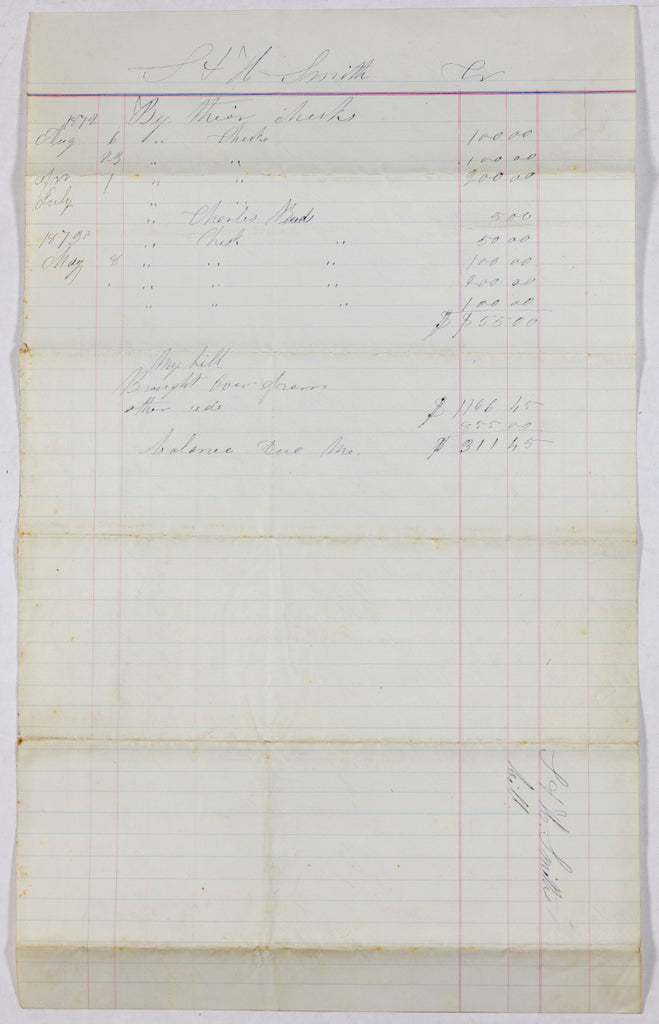 S & H Smith Cr
1872 By thier checks
Aug 6 " Check 100 00
23 " " 100 00
" 1 " " 200 00
July " "
" Charles 5 00
1873 " Check " 50 00
May 8 " " " 100 00
" " " " 200 00
" " " 100 00
$ 855 00
My bill
Brought over from
other side $ 1166 45
855 00
balance Due Me. $ 311 45
S & H. Smith
bill